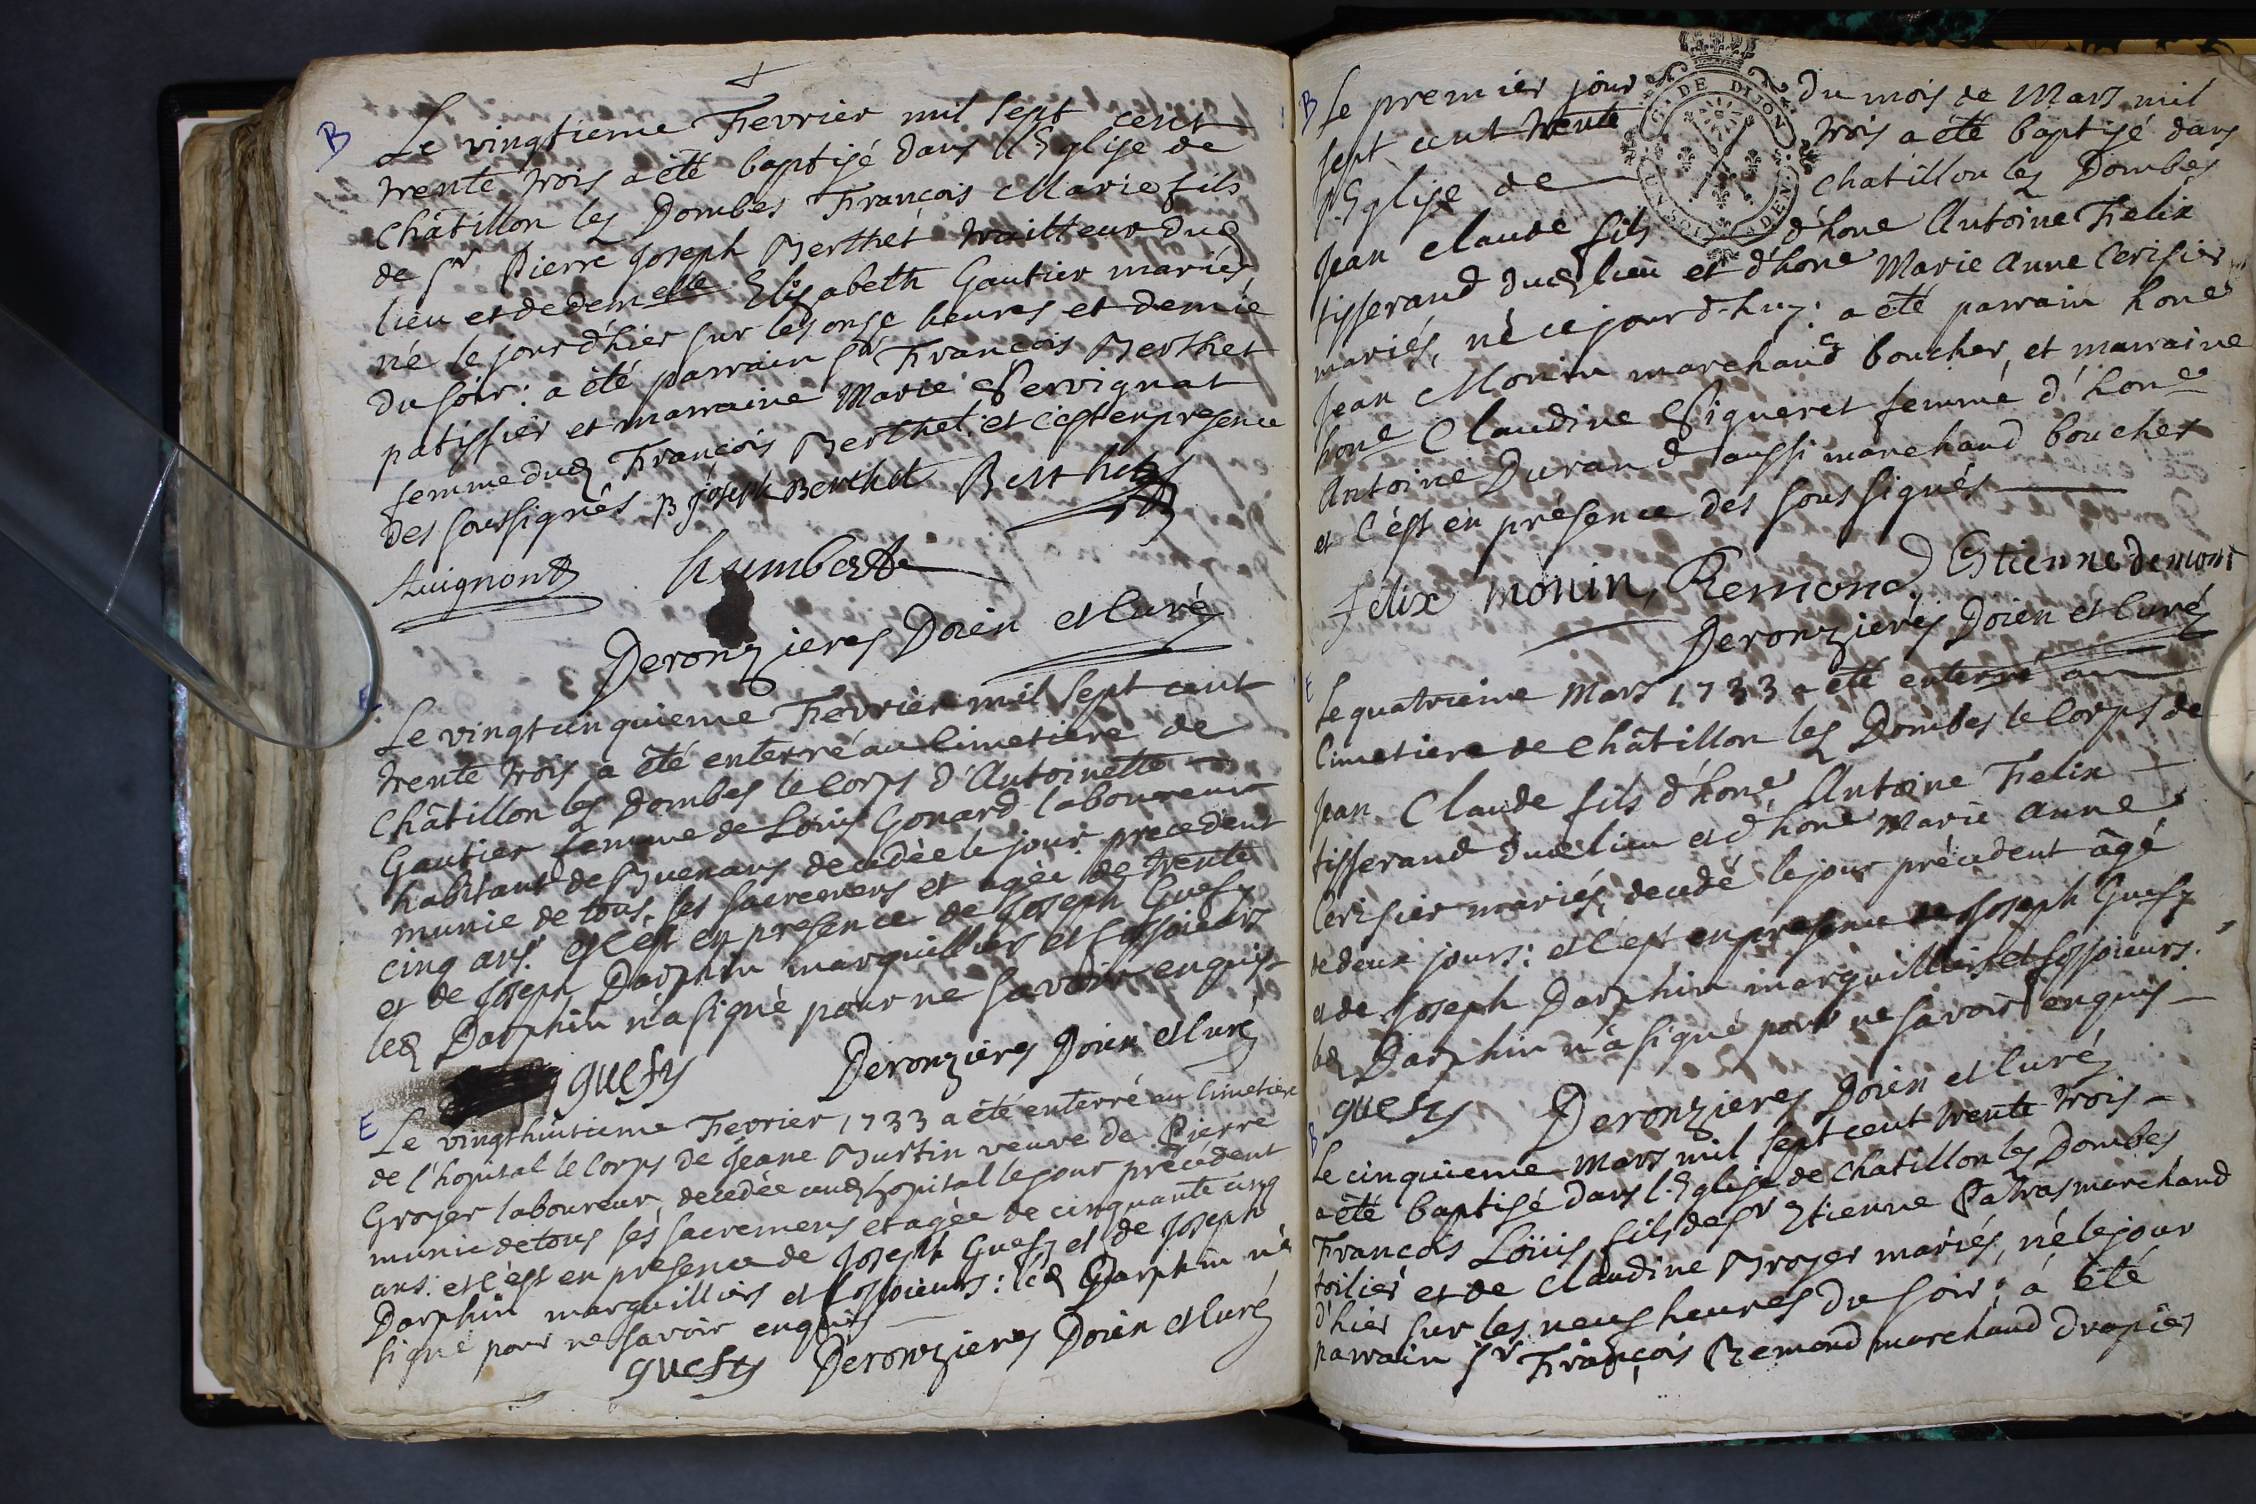 B
Le vingtieme Fevrier mil sept cent
trente trois a été baptisé dans l'Eglise de
Châtillon les Dombes François Marie fils
de Sr Pierre Joseph Berthet traitteur dud
lieu et de demelle Elisabeth Gautier mariés
né le jour d'hier sur les onse heures et demie
du soir: a été parrain Sr François Berthet
patissier et marraine Marie Pervignat
femme dud François Berthet: et c'est en presence
des soussignés p joseph Berthet Berthet
Avignont humbert
Deronzieres Doien et Curé
E
Le vingtcinquieme Fevrier mil sept cent
trente trois a été enterré au Cimetiere de
Châtillon les Dombes le Corps d'Antoinette
Gautier femme de Loüis Gonard laboureur
habitant de Buenans decedée le jour precedent
munie de tous ses sacremens et agée de trente
cinq ans: et c'est en presence de Joseph Guesy
et de Joseph Darphin marguilliers et fossoieurs
led Darphin n'a signé pour ne savoir enquis
guesy Deronzieres Doien et Curé
E
Le vingthuitieme Fevrier 1733 a été enterré au Cimetiere
de l'hopital le Corps de Jeane Burtin veuve de Pierre
Groyer laboureur, decedée aud hopital le jour précédent
munie de tous ses sacremens et agée de cinquante cinq
ans: et c'est en presence de Joseph Guesy et de Joseph
Darphin marguilliers et fossoieurs: led Darphin n'a
signé pour ne savoir enquis
guesy Deronzieres Doien et Curé
B
Le premier jour du mois de Mars mil
sept cent trente trois a été baptisé dans
l'Eglise de Chatillon les Dombes
G. DE DIJON
Jean Claude fils d'hone Antoine Felix
tisserand dud lieu et d'hone Marie Anne Cerisier
mariés, né ce jourd'huy: a été parrain hone
Jean Monin marchand boucher, et marraine
hone Claudine Piqueret femme d'hone
Antoine Durand aussi marchand boucher
et c'est en présence des soussignés
felix monin, Remond Estienne demont
Deronzieres Doien et Curé
E
Le quatrieme Mars 1733 a été enterré au
Cimetiere de Châtillon les Dombes le Corps de
Jean Claude fils d'hone Antoine Felix
tisserand dud lieu et d'hone Marie Anne
Cerisier mariés, decedé le jour précedent âgé
de deux jours: et c'est en presence de Joseph Guesy
et de Joseph Darphin marguilliers et fossoieurs:
led Darphin n'a signé pour ne savoir enquis
guesy Deronzieres Doien et Curé
B
Le cinquieme Mars mil sept cent trente trois
a été baptisé dans l'Eglise de Chatillon les Dombes
François Loüis fils de Sr Etienne Patras marchand
toilier et de Claudine Broyer mariés, né le jour
d'hier sur les neuf heures du soir: a été
parrain Sr François Remond marchand drapier